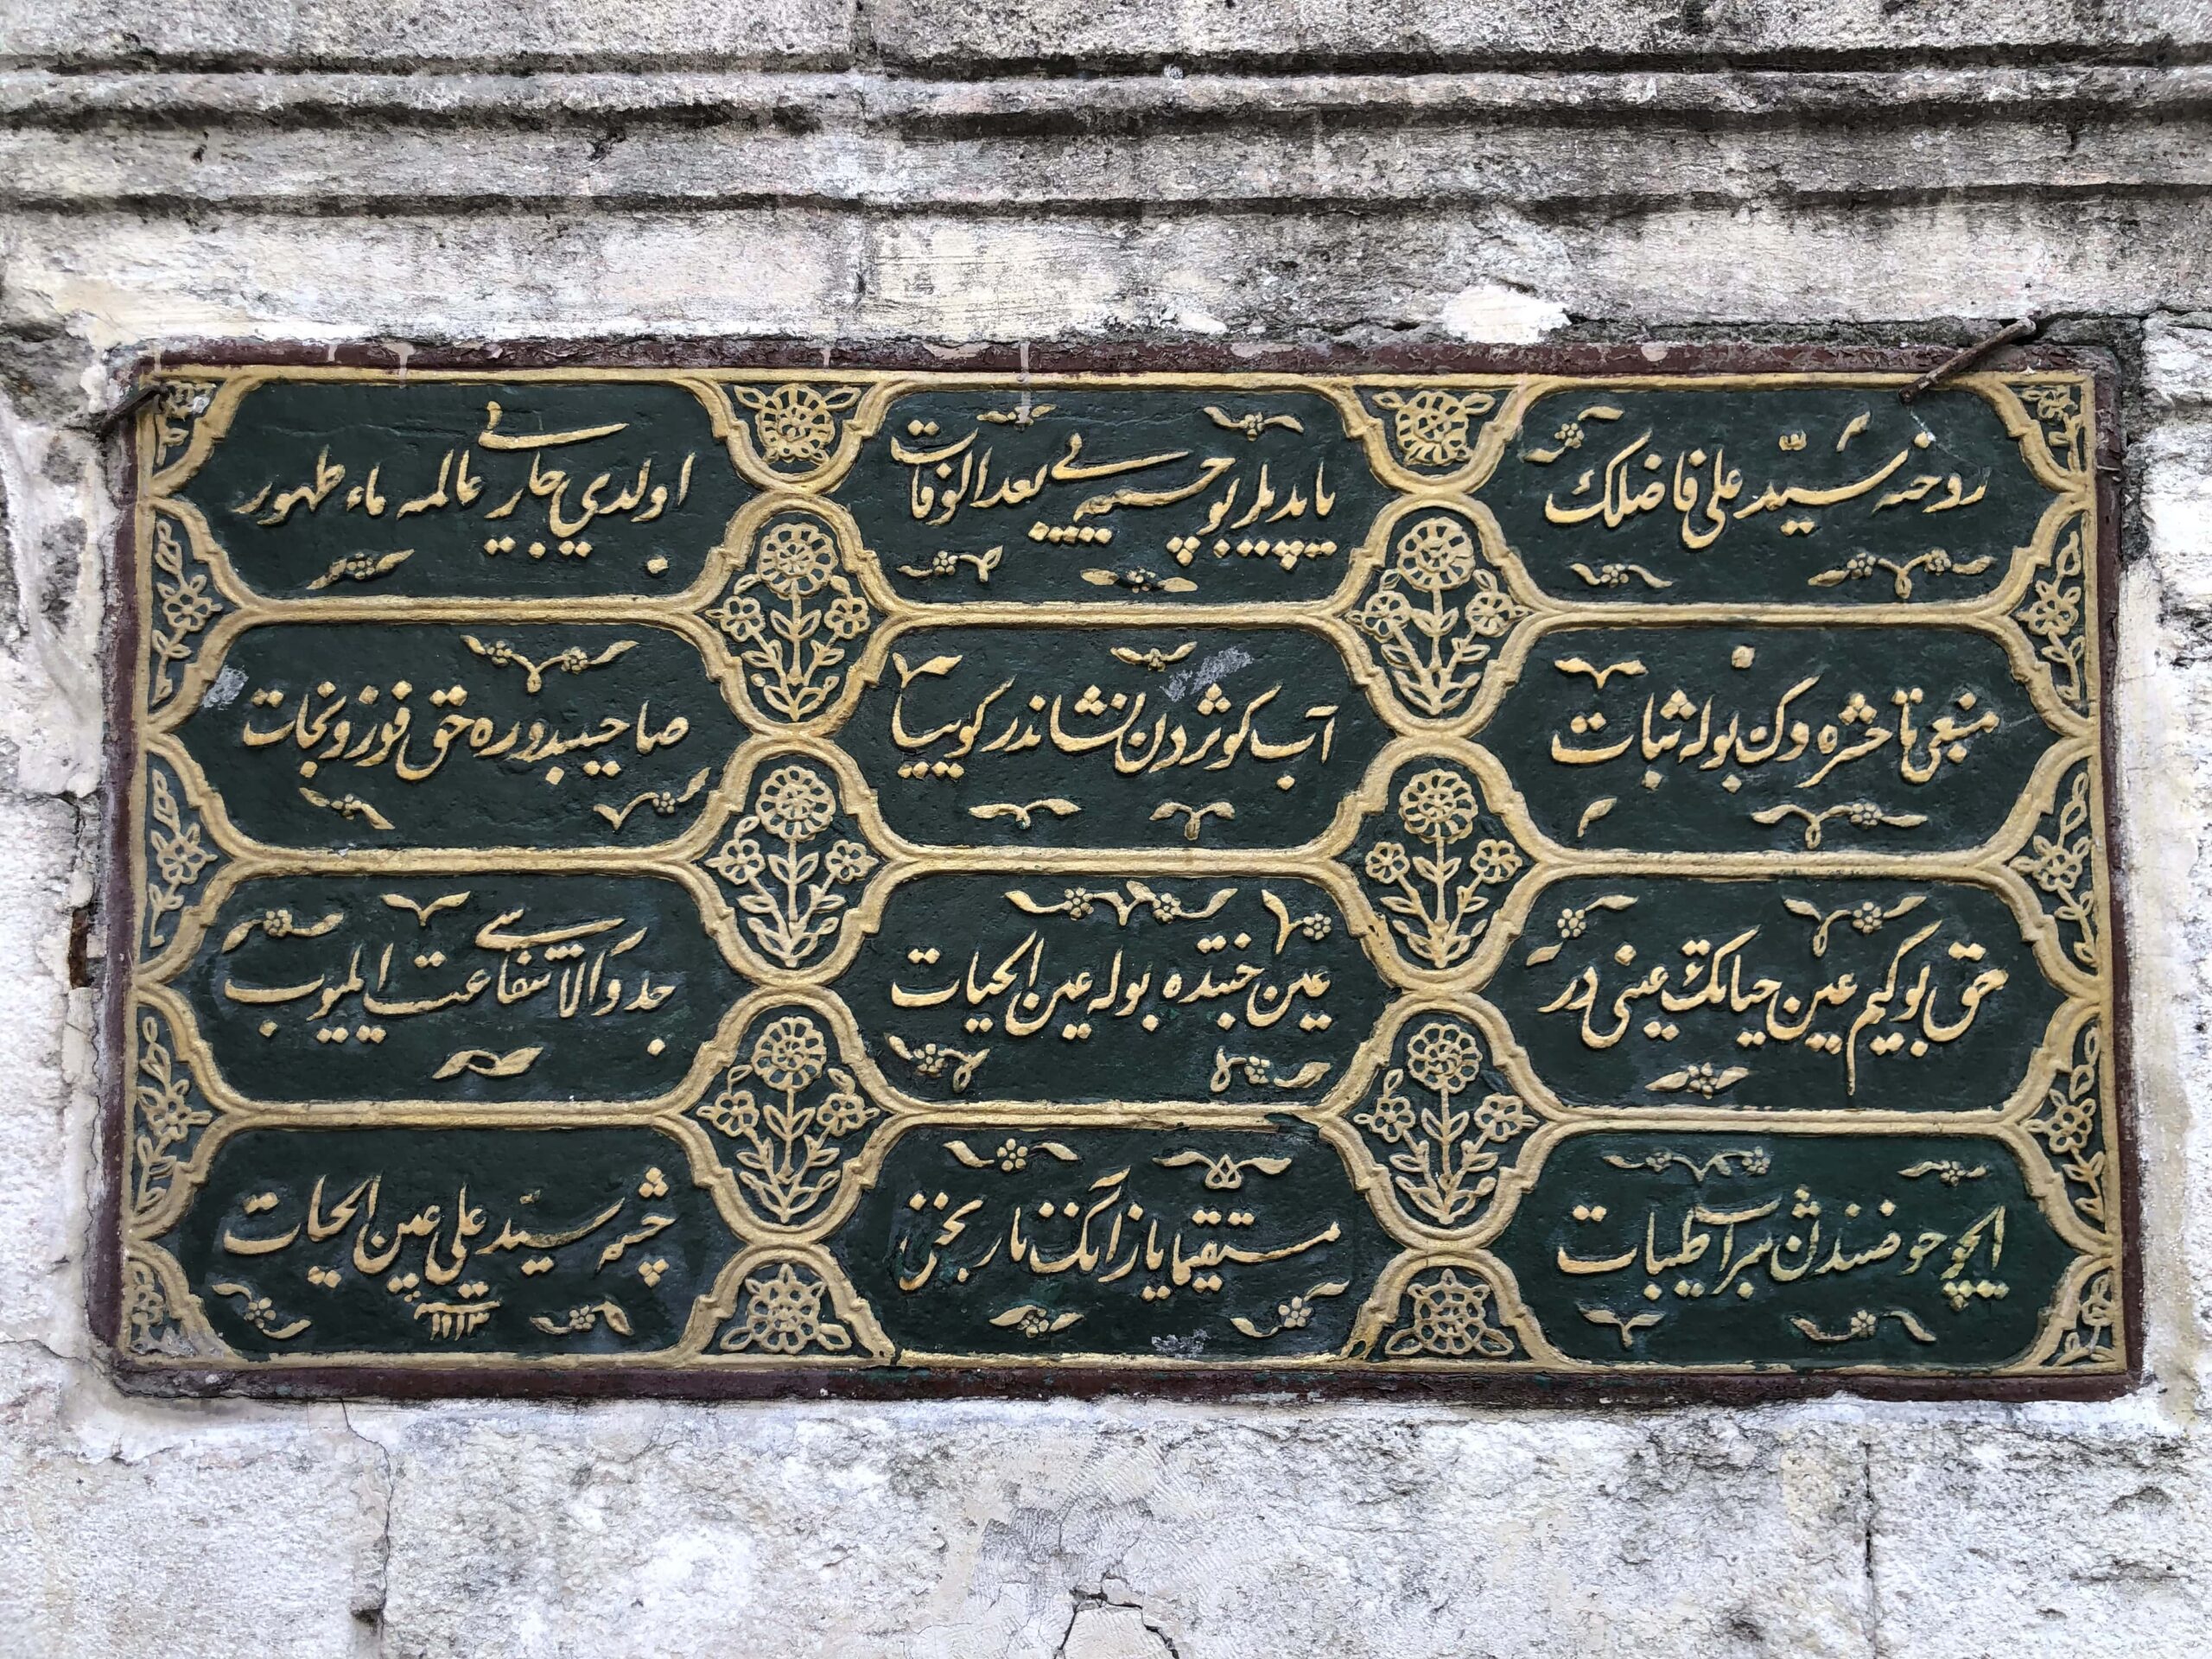 روحنه سيّد علی فاضلك
یاپدیلر بو چشمه یی بعد الوفات
اولدی جاری عالمه ماء طهور
منبعی تا حشره دك بوله ثبات
آب کوثردن نشاندر کوییا
صاحبیدوره حق فوز و نجات
حق بو کیم عین حیاتك عینی در
عین جنتده بوله عین الحیات
جد والا شفاعت ایلیوب
ایچوره حوضندن شراب طیبات
مستقیما یاز آنك تاریخنی
چشمه سيّد علی عین الحیات
سنه ١١١٣